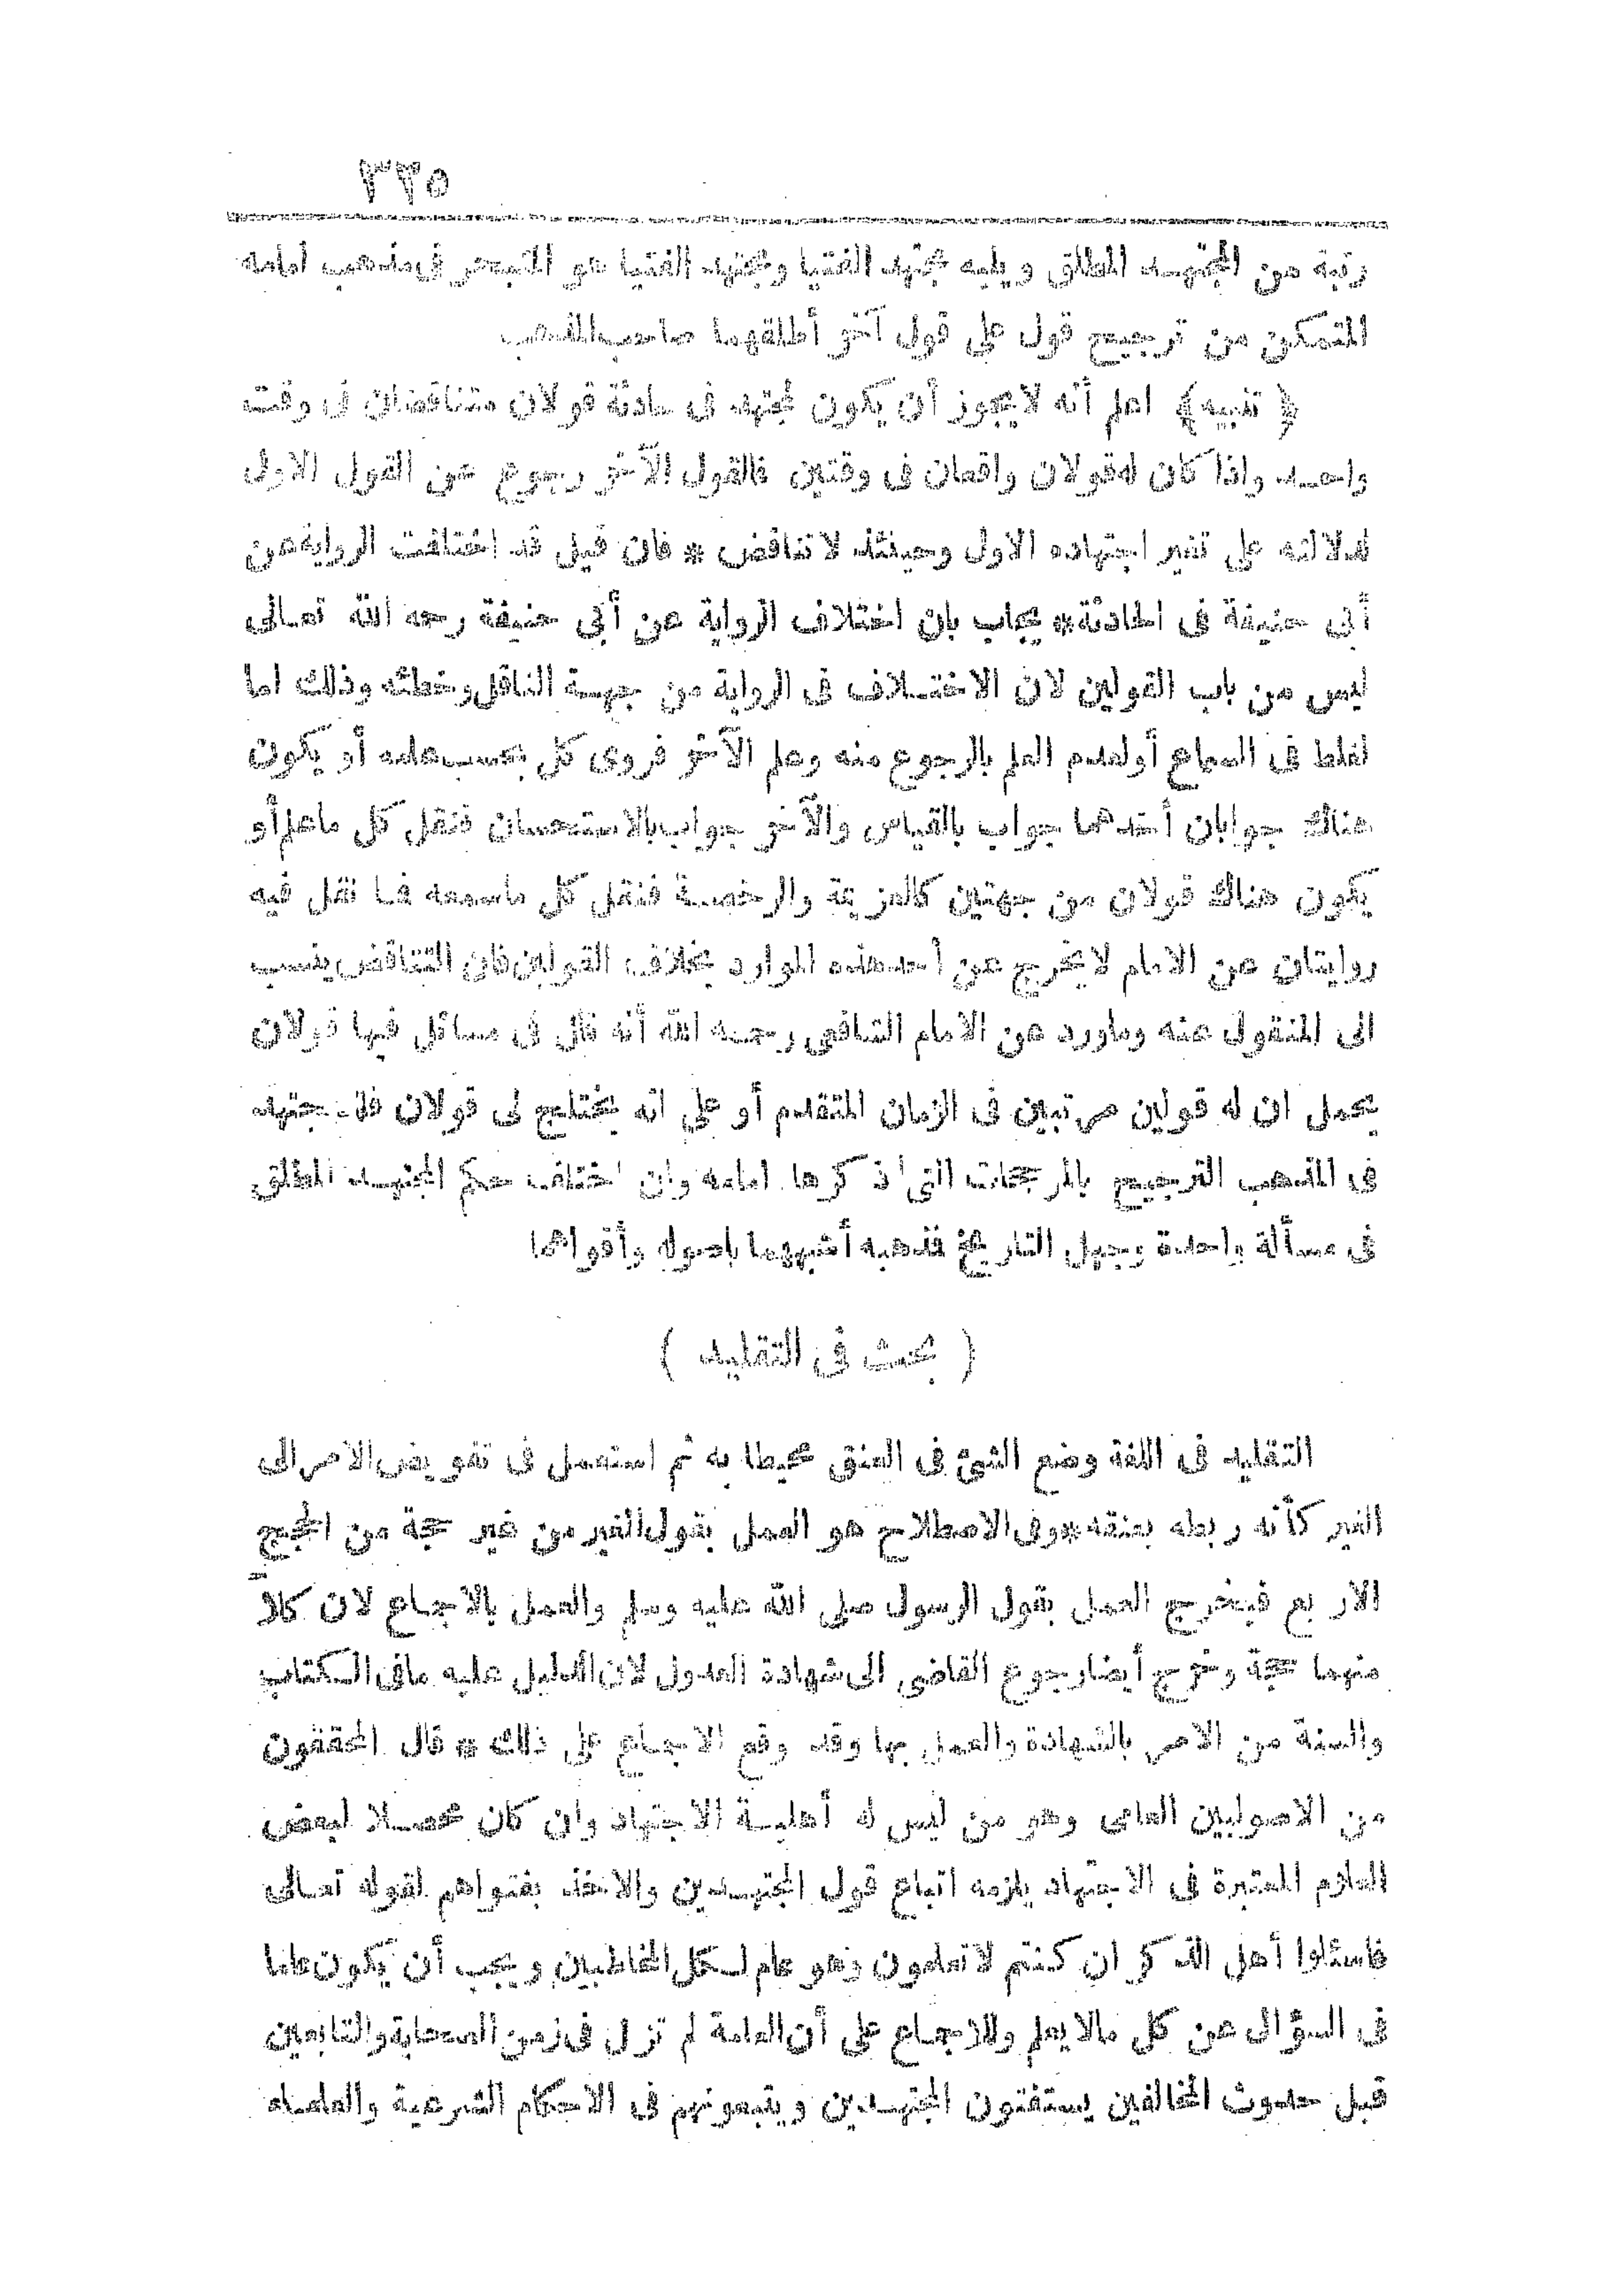 ٣٣٥
رتبة من المجتهد المطلق ويليه مجتهد الفتيا ومجتهد الفتيا هو المتبحر فى مذهب امامه
المتمكن من ترجيح قول على قول آخر أطلقهما صاحب المذهب
﴿ تنبيه ﴾ اعلم أنه لايجوز أن يكون لمجتهد فى حادثة قولان متناقضان فى وقت
واحد واذا كان له قولان واقعان فى وقتين فالقول الآخر رجوع عن القول الاول
لدلالته على تغير اجتهاده الاول وحينئذ لا تناقض * فان قيل قد اختلفت الرواية عن
أبى حنيفة فى الحادثة * يجاب بان اختلاف الرواية عن أبى حنيفة رحمه الله تعالى
ليس من باب القولين لان الاختلاف فى الرواية من جهة الناقل وخطئه وذلك اما
لغلط فى السماع أولعدم العلم بالرجوع منه وعلم الآخر فروى كل بحسب علمه أو يكون
هناك جوابان أحدهما جواب بالقياس والآخر جواب بالاستحسان فنقل كل ماعلم أو
يكون هناك قولان من جهتين كالعزيمة والرخصة فنقل كل ماسمعه فما نقل فيه
روايتان عن الامام لايخرج عن أحد هذه الموارد بخلاف القولين فان التناقض ينسب
الى المنقول عنه وماورد عن الامام الشافعى رحمه الله أنه قال فى مسائل فيها قولان
يحمل ان له قولين مرتبين فى الزمان المتقدم أو على انه يختلج لى قولان فلمجتهد
فى المذهب الترجيح بالمرجحات التى ذكرها امامه وان اختلف حكم المجتهد المطلق
فى مسألة واحدة وجهل التاريخ فذهبه أشبههما باصوله وأقواهما
( بحث فى التقليد )
التقليد فى اللغة وضع الشئ فى العنق محيطا به ثم استعمل فى تفويض الامر الى
الغير كأنه ربطه بعنقه * وفى الاصطلاح هو العمل بقول الغير من غير حجة من الحجج
الاربع فيخرج العمل بقول الرسول صلى الله عليه وسلم والعمل بالاجماع لان كلا
منهما حجة وخرج أيضا رجوع القاضى الى شهادة العدول لان الدليل عليه مافى الكتاب
والسنة من الامر بالشهادة والعمل بها وقد وقع الاجماع على ذلك * قال المحققون
من الاصوليين العامى وهو من ليس له أهلية الاجتهاد وان كان محصلا لبعض
العلوم المعتبرة فى الاجتهاد يلزمه اتباع قول المجتهدين والاخذ بفتواهم لقوله تعالى
فاسئلوا أهل الذكر ان كنتم لاتعلمون وهو عام لكل المخاطبين ويجب أن يكون عاما
فى السؤال عن كل مالايعلم وللاجماع على أن العامة لم تزل فى زمن الصحابة والتابعين
قبل حدوث المخالفين يستفتون المجتهدين ويتبعونهم فى الاحكام الشرعية والعلماء